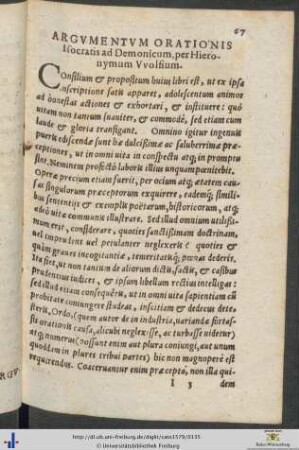 67
ARGVMENTVM ORATIONIS
Isocratis ad Demonicum, per Hiero-
nymum VVolfium.
Consilium & propositum huius libri est, ut ex ipsa
inscriptione satis apparet, adolescentum animos
ad honestas actiones & exhortari, & instituere: quò
uitam non tantum suauiter, & commodè, sed etiam cum
laude & gloria transigant. Omnino igitur ingenuis
pueris ediscendæ sunt hæ dulcissimæ ac saluberrimæ præ-
ceptiones, ut in omni uita in conspectu atq; in promptu
sint. Neminem profectò laboris illius unquam pœnitebit.
Operæ precium etiam fuerit, per ocium atq; ætatem cau-
sas singulorum præceptorum exquirere, eademq; simili-
bus sententijs & exemplis poëtarum, historicorum, atq;
adeò uitæ communis illustrare. Sed illud omnium utilissi-
mum erit, considerare, quoties sanctissimam doctrinam,
uel imprudens uel petulanter neglexeris: & quoties &
quàm graues incogitantiæ, temeritatisq; pœnas dederis.
Ita fiet, ut non tantum de aliorum dictis, factis, & casibus
prudenter iudices, & ipsum libellum rectius intelligas:
sed illud etiam consequêris, ut in omni uita sapientiam cū
probitate coniungere studeas, inscitiam & dedecus dete-
steris. Ordo, (quem autor de in industria, uariandæ fortas-
sis orationis causa, alicubi neglexisse, ac turbasse uidetur)
atq; numerus (possunt enim aut plura coniungi, aut unum
quoddam in plures tribui partes) hic non magnoperè est
requirendus. Coaceruantur enim præcepta, non illa qui-
I 3 dem
RGV
http://dl.ub.uni-freiburg.de/diglit/
Universitätsbibliothek Freiburg
Baden-Württemberg